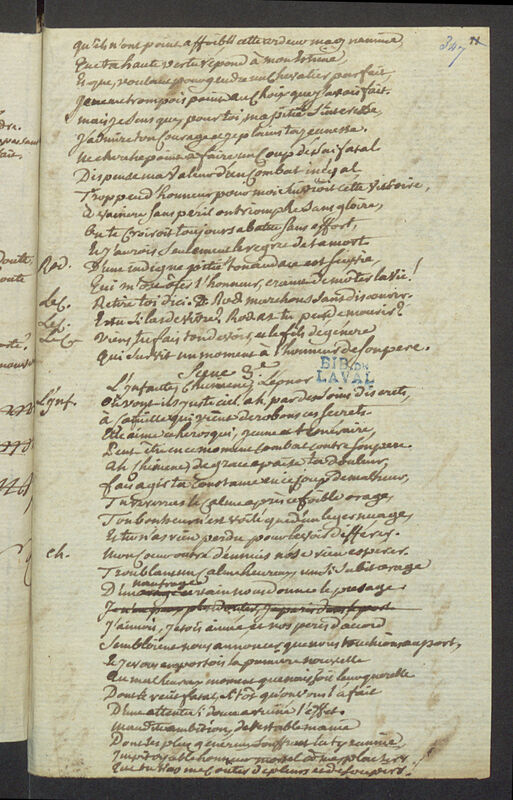 347
qu'ils n'ont point affoibli cette ardeur magnanime,
Que ta haute vertu repond à mon estime,
Et que, voulant pour gendre un Chevalier parfait,
Je ne me trompois point au Choix que j'avois fait.
mais je sens que pour toi ma pitié s'interesse,
J'admire ton Courage et je plains ta jeunesse.
ne cherche point à faire un Coup d'essai fatal
Dispense ma Valeur d'un Combat inégal,
Trop peu d'honneur pour moi suivroit cette Victoire,
à vaincre sans peril on triomphe sans gloire,
On te croiroit toujours abatu sans effort,
Et j'aurois seulement le regret de ta mort
Rod. D'une indigne pitié ton audace est suivie,
Qui m'ose ôter l'honneur, craint de m'oter la vie!
Le C. Retire toi d'ici. Rod. marchons sans discourir.
Le C. Es tu si las de vivre? Rod. as tu peur de mourir?
Le C. Viens tu fais ton devoir, et le fils dégenere
Qui survit un moment à l'honneur de son pere.
Scene 3e
L'infante, Chimene, Leonor
BIB. DE
LAVAL
L'inf.
à
Elle aime
Peut être en ce moment combat contre son pere
Ah Chimene, de grace apaise ta douleur,
fais agir ta Constance en ce Coup de malheur,
Tu reverras le Calme après ce foible orage,
Ton bonheur n'est voilé que d'un leger nuage,
Et tu n'as rien perdu pour le voir différer.
Ch. Mon Coeur outré d'ennuis n'ose rien esperer.
Troublant un Calme heureux, un si subit orage
naufrage
D'un certain nous donne le presage
J'aimois, j'etois aimée et nos peres d'accord
Sembloient nous annoncer que nous touchions au port,
Et je vous en portois la premiere nouvelle
Au malheureux moment que naissoit leur querelle
Dont le recit fatal, si tôt qu'on vous l'a fait
D'une attente si douce a ruiné l'effet.
maudite ambition, detestable manie
Dont les plus genereux souffrent la tyrannie,
Impitoyable honneur mortel à mes plaisirs
Que tu vas me couter de pleurs et de soupirs!